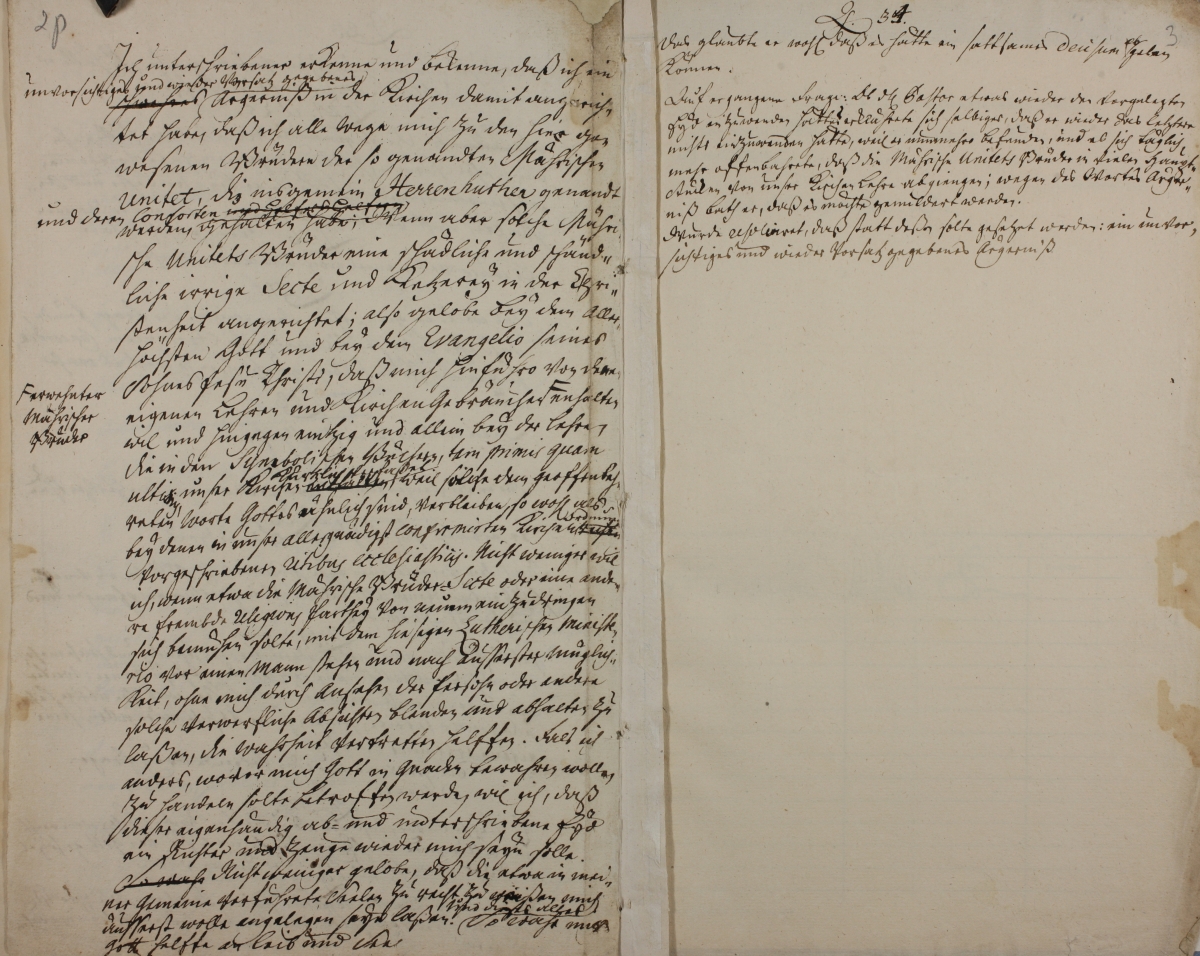 2p
Ich unterschriebener erkenne und bekenne, daß ich ein
unvorsichtiges und wieder Vorsatz gegebenes
schweres Ärgerniß in der Kirchen damit angerich-
tet habe, daß ich alle Wege mich zu den hier ge-
wesenen Brüdern der so genandten Mährischen
Unitet, die insgemein Herrenhuther genandt
und deren Consorten
werden, gehalten habe; Wenn aber solche Mähri-
sche Unitets Brüder eine schädliche und schänd-
liche irrige Secte und Ketzerey in der Chri-
stenheit angerichtet; also gelobe bey dem Aller-
höchsten Gott und bey dem Evangelio seines
Sohnes Jesu Christi, daß mich hinführo von denen
eigenen Lehren und Kirchen Gebräuchen enthalten
erwehnter
Mährischer
Brüder
wil und hingegen eintzig und allein bey der Lehre,
die in den Symbolischen Büchern, tam primis quam
ultimis unser Kirchen verfasset weil solche dem geoffenbah-
reten Worte Gottes ähnlich sind, verbleiben, so wohl als
bey denen in unser allergnädigst confirmirten Kirchen Ordnung
vorgeschriebenen ritibus ecclesiasticis. Nicht weniger wil
ich, wenn etwa die Mährische Brüder-Secte oder eine ande-
re frembde Religions Parthey von neuem einzudringen
sich bemühen solte, mit dem hiesigen Lutherischen Ministe-
rio vor einen Mann stehen und nach äusserster Müglich-
keit, ohne mich durch Ansehen der Persohn oder andere
solche verwerfliche Absichten blenden und abhalten zu
laßen, die Wahrheit vertretten helffen. Fals ich
anders, wovor mich Gott in Gnaden bewahren wolle,
zu handeln solte betroffen werden, wil ich, daß
dieser eigenhändig ab- und unterschriebene Eyd
ein Richter und Zeuge wieder mich seyn solle.
So wahr Nicht weniger gelobe, daß die etwa in mei-
ner Gemeine verführete Seelen zu recht zu weisen mich
äusserst wolle angelegen seyn laßen. und dieses alles So wahr mir
Gott helffe an Leib und Seel
34.
3
das glaubte er noch daß es hätte ein sattsames decisum geben
können.
Auf ergangene Frage: Ob H. Pastor etwas wieder den vorgelegten
Eyd einzuwenden hätte erklährete sich selbiger, daß er wieder das letztere
nichts einzuwenden hätte, weil er nunmehro befunden, und es sich täglich
mehr offenbahrete, daß die Mährische Unitets Brüder in vielen Haupt-
stücken von unser Kirchen Lehre abgiengen; wegen des Wortes Ärger-
niß bath er, daß es möchte gemildert werden.
Wurde resolviret, daß statt deßen solte gesetzet werden: ein unvor-
sichtiges und wieder Vorsatz gegebenes Ärgerniß